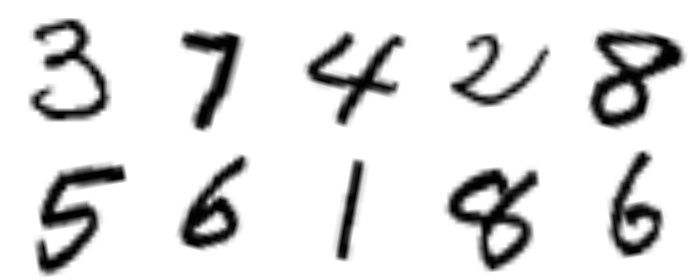 3 7 4 2 8
5 6 1 8 6